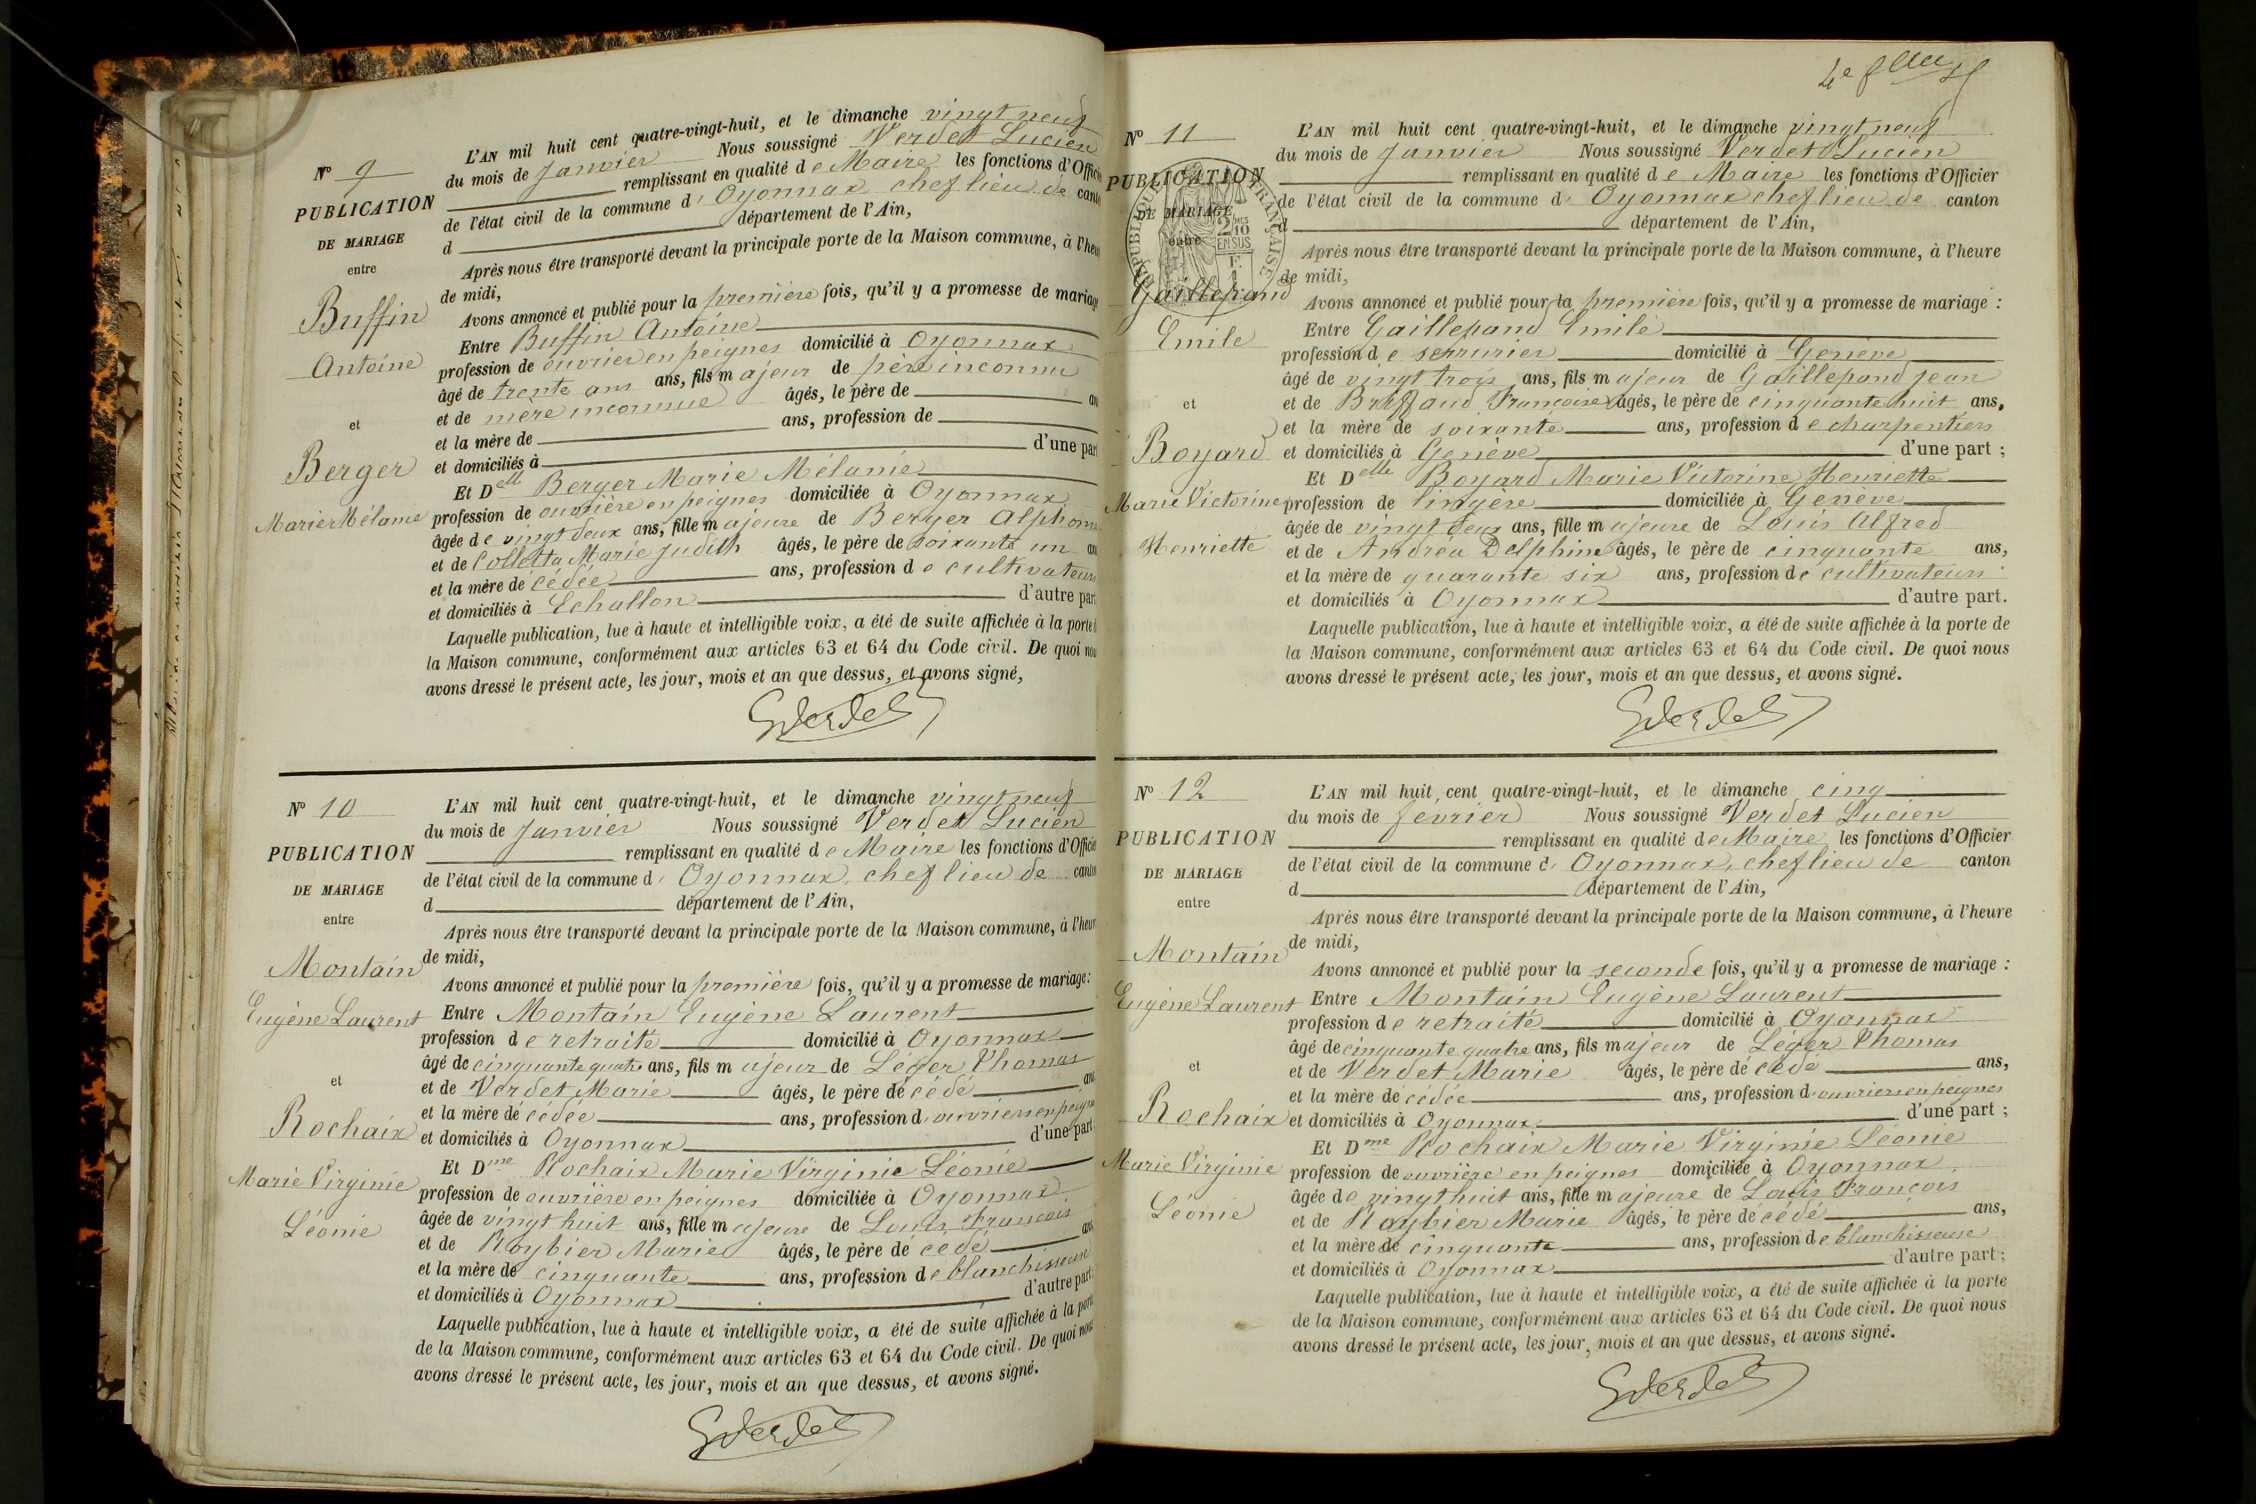 N° 9
PUBLICATION
DE MARIAGE
entre
Buffin
Antoine
et
Berger
Marie Mélanie
L'AN mil huit cent quatre-vingt-huit, et le dimanche vingt neuf
du mois de Janvier Nous soussigné Verdet Lucien
remplissant en qualité de Maire les fonctions d'Offici
de l'état civil de la commune d' Oyonnax chef lieu de canto
d département de l'Ain,
Après nous être transporté devant la principale porte de la Maison commune, à l'heu
de midi,
Avons annoncé et publié pour la première fois, qu'il y a promesse de mariage
Entre Buffin Antoine
profession de ouvrier en peignes domicilié à Oyonnax
âgé de trente ans ans, fils majeur de père inconnu
et de mère inconnue âgés, le père de an
et la mère de ans, profession de
et domiciliés à d'une part
Et Delle Berger Marie Mélanie
profession de ouvrière en peignes domiciliée à Oyonnax
âgée de vingt deux ans, fille majeure de Berger Alphonse
et de Colletta Marie Judith âgés, le père de soixante un an
et la mère de cédée ans, profession de cultivateurs
et domiciliés à Echallon d'autre par
Laquelle publication, lue à haute et intelligible voix, a été de suite affichée à la porte
la Maison commune, conformément aux articles 63 et 64 du Code civil. De quoi nou
avons dressé le présent acte, les jour, mois et an que dessus, et avons signé,
Verdet
N° 10
PUBLICATION
DE MARIAGE
entre
Montain
Eugène Laurent
et
Rochaix
Marie Virginie
Léonie
L'AN mil huit cent quatre-vingt-huit, et le dimanche vingt neuf
du mois de Janvier Nous soussigné Verdet Lucien
remplissant en qualité de Maire les fonctions d'Officie
de l'état civil de la commune d' Oyonnax, chef lieu de canton
d département de l'Ain,
Après nous être transporté devant la principale porte de la Maison commune, à l'heur
de midi,
Avons annoncé et publié pour la première fois, qu'il y a promesse de mariage :
Entre Montain Eugène Laurent
profession de retraité domicilié à Oyonnax
âgé de cinquante quatre ans, fils majeur de Léger Thomas
et de Verdet Marie âgés, le père décédé ans
et la mère décédée ans, profession d' ouvriers en peignes
et domiciliés à Oyonnax d'une part
Et Dme Rochaix Marie Virginie Léonie
profession de ouvrière en peignes domiciliée à Oyonnax
âgée de vingt huit ans, fille majeure de Louis François
et de Roybier Marie âgés, le père décédé ans
et la mère de cinquante ans, profession de blanchisseuse
et domiciliés à Oyonnax d'autre part
Laquelle publication, lue à haute et intelligible voix, a été de suite affichée à la porte
de la Maison commune, conformément aux articles 63 et 64 du Code civil. De quoi nous
avons dressé le présent acte, les jour, mois et an que dessus, et avons signé.
Verdet
N° 11
PUBLICATION
DE MARIAGE
entre
Gaillepand
Emile
et
Boyard
Marie Victorine
Henriette
L'AN mil huit cent quatre-vingt-huit, et le dimanche vingt neuf
du mois de Janvier Nous soussigné Verdet Lucien
remplissant en qualité de Maire les fonctions d'Officier
de l'état civil de la commune d' Oyonnax chef lieu de canton
d département de l'Ain,
Après nous être transporté devant la principale porte de la Maison commune, à l'heure
de midi,
Avons annoncé et publié pour la première fois, qu'il y a promesse de mariage :
Entre Gaillepand Emile
profession de serrurier domicilié à Genève
âgé de vingt trois ans, fils majeur de Gaillepand Jean
et de Briffaud Françoise âgés, le père de cinquante huit ans,
et la mère de soixante ans, profession de charpentiers
et domiciliés à Genève d'une part ;
Et Delle Boyard Marie Victorine Henriette
profession de lingère domiciliée à Genève
âgée de vingt deux ans, fille majeure de Louis Alfred
et de Andréa Delphine âgés, le père de cinquante ans,
et la mère de quarante six ans, profession de cultivateurs
et domiciliés à Oyonnax d'autre part.
Laquelle publication, lue à haute et intelligible voix, a été de suite affichée à la porte de
la Maison commune, conformément aux articles 63 et 64 du Code civil. De quoi nous
avons dressé le présent acte, les jour, mois et an que dessus, et avons signé.
Verdet
N° 12
PUBLICATION
DE MARIAGE
entre
Montain
Eugène Laurent
et
Rochaix
Marie Virginie
Léonie
L'AN mil huit cent quatre-vingt-huit, et le dimanche cinq
du mois de fevrier Nous soussigné Verdet Lucien
remplissant en qualité de Maire les fonctions d'Officier
de l'état civil de la commune d' Oyonnax, chef lieu de canton
d département de l'Ain,
Après nous être transporté devant la principale porte de la Maison commune, à l'heure
de midi,
Avons annoncé et publié pour la seconde fois, qu'il y a promesse de mariage :
Entre Montain Eugène Laurent
profession de retraité domicilié à Oyonnax
âgé de cinquante quatre ans, fils majeur de Léger Thomas
et de Verdet Marie âgés, le père décédé ans,
et la mère décédée ans, profession d' ouvriers en peignes
et domiciliés à Oyonnax d'une part ;
Et Dme Rochaix Marie Virginie Léonie
profession de ouvrière en peignes domiciliée à Oyonnax
âgée de vingt huit ans, fille majeure de Louis François
et de Roybier Marie âgés, le père décédé ans,
et la mère de cinquante ans, profession de blanchisseuse
et domiciliés à Oyonnax d'autre part ;
Laquelle publication, lue à haute et intelligible voix, a été de suite affichée à la porte
de la Maison commune, conformément aux articles 63 et 64 du Code civil. De quoi nous
avons dressé le présent acte, les jour, mois et an que dessus, et avons signé.
Verdet